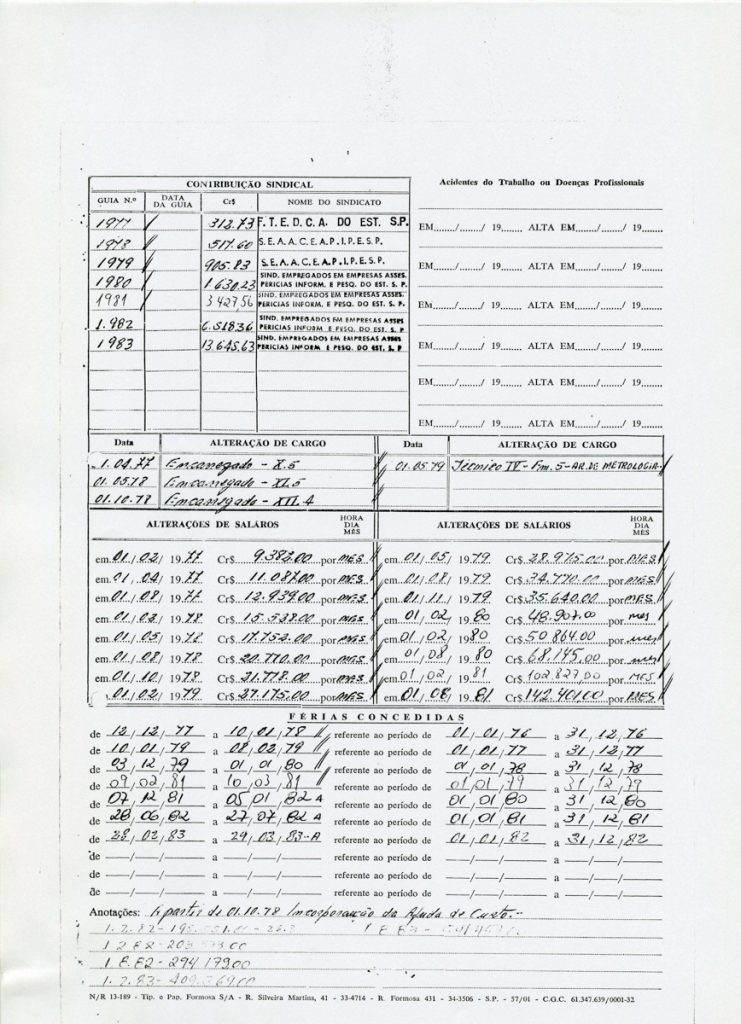 CONTRIBUIÇÃO SINDICAL
GUIA N.º DATA DA GUIA Cr$ NOME DO SINDICATO
1977 312.73 F. T. E. D. C. A. DO EST. S.P.
1978 517.60 S.E.A.A.C.E.A.P.I.P.E.S.P.
1979 905.83 S.E.A.A.C.E.A.P.I.P.E.S.P.
1980 1.630,23 SIND. EMPREGADOS EM EMPRESAS ASSES. PERICIAS INFORM. E PESQ. DO EST. S. P.
1981 3427,56 SIND. EMPREGADOS EM EMPRESAS ASSES. PERICIAS INFORM. E PESQ. DO EST. S. P.
1.982 6.518,36 SIND. EMPREGADOS EM EMPRESAS ASSES PERICIAS INFORM. E PESQ. DO EST. S. P
1983 13.645,63 SIND. EMPREGADOS EM EMPRESAS ASSES. PERICIAS INFORM. E PESQ. DO EST. S. P
Acidentes do Trabalho ou Doenças Profissionais
EM....../....../ 19...... ALTA EM....../....../ 19......
EM....../....../ 19...... ALTA EM....../....../ 19......
EM....../....../ 19...... ALTA EM....../....../ 19......
EM....../....../ 19...... ALTA EM....../....../ 19......
EM....../....../ 19...... ALTA EM....../....../ 19......
EM....../....../ 19...... ALTA EM....../....../ 19......
Data ALTERAÇÃO DE CARGO
1.04.77 Encarregado - X.5
01.05.78 Encarregado - XI.5
01.10.78 Encarregado - XII.4
Data ALTERAÇÃO DE CARGO
01.05.79 Técnico IV - Fm.5 - AR.DE METROLOGIA-
ALTERAÇÕES DE SALÁROS HORA DIA MÊS
em 01/02/1977 Cr$ 9.382.00 por MES
em 01/04/1977 Cr$ 11.087.00 por MES
em 01/08/1977 Cr$ 12.939.00 por MES
em 01/02/1978 Cr$ 15.528.00 por MES
em 01/05/1978 Cr$ 17.752.00 por MES
em 01/08/1978 Cr$ 20.770.00 por MES
em 01/10/1978 Cr$ 21.778.00 por MES
em 01/02/1979 Cr$ 27.175.00 por MES
ALTERAÇÕES DE SALÁRIOS HORA DIA MÊS
em 01/05/1979 Cr$ 28.975.00 por MES
em 01/08/1979 Cr$ 34.770.00 por MES
em 01/11/1979 Cr$ 35.640.00 por MES
em 01/02/1980 Cr$ 48.907.00 por mes
em 01/02/1980 Cr$ 50864.00 por mes
em 01/08/1980 Cr$ 68.145.00 por mes
em 01/02/1981 Cr$ 102.827.00 por MES
em 01/08/1981 Cr$ 142.401.00 por MES
FÉRIAS CONCEDIDAS
de 12/12/77 a 10/01/78 referente ao período de 01/01/76 a 31/12/76
de 10/01/79 a 08/02/79 referente ao período de 01/01/77 a 31/12/77
de 03/12/79 a 01/01/80 referente ao período de 01/01/78 a 31/12/78
de 09/02/81 a 10/03/81 referente ao período de 01/01/79 a 31/12/79
de 07/12/81 a 05/01/82 A referente ao período de 01/01/80 a 31/12/80
de 28/06/82 a 27/07/82 A referente ao período de 01/01/81 a 31/12/81
de 28/02/83 a 29/03/83-A referente ao período de 01/01/82 a 31/12/82
de / / a / / referente ao período de / / a / /
de / / a / / referente ao período de / / a / /
de / / a / / referente ao período de / / a / /
Anotações: A partir de 01.10.78 Incorporação da Ajuda de Custo.-
1.2.82-
1 2 82-203 00
1 8.82-294 179.00
1.2.83-409.369.00
N/R 13-189 - Tip. e Pap. Formosa S/A - R. Silveira Martins, 41 - 33-4714 - R. Formosa 431 - 34-3506 - S.P. - 57/01 - C.G.C. 61.347.639/0001-32